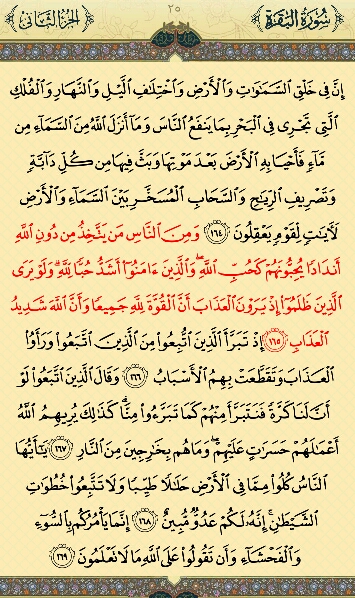 سُورَةُ البَقَرَة ٢٥ الجُزءُ الثَّانِي
إِنَّ فِي خَلْقِ السَّمَٰوَٰتِ وَالْأَرْضِ وَاخْتِلَٰفِ الَّيْلِ وَالنَّهَارِ وَالْفُلْكِ
الَّتِي تَجْرِي فِي الْبَحْرِ بِمَا يَنفَعُ النَّاسَ وَمَا أَنزَلَ اللَّهُ مِنَ السَّمَاءِ مِن
مَّاءٍ فَأَحْيَا بِهِ الْأَرْضَ بَعْدَ مَوْتِهَا وَبَثَّ فِيهَا مِن كُلِّ دَابَّةٍ
وَتَصْرِيفِ الرِّيَٰحِ وَالسَّحَابِ الْمُسَخَّرِ بَيْنَ السَّمَاءِ وَالْأَرْضِ
لَأٓيَٰتٍ لِّقَوْمٍ يَعْقِلُونَ ١٦٤ وَمِنَ النَّاسِ مَن يَتَّخِذُ مِن دُونِ اللَّهِ
أَندَادًا يُحِبُّونَهُمْ كَحُبِّ اللَّهِ ۖ وَالَّذِينَ ءَامَنُوا أَشَدُّ حُبًّا لِّلَّهِ ۗ وَلَوْ يَرَى
الَّذِينَ ظَلَمُوا إِذْ يَرَوْنَ الْعَذَابَ أَنَّ الْقُوَّةَ لِلَّهِ جَمِيعًا وَأَنَّ اللَّهَ شَدِيدُ
الْعَذَابِ ١٦٥ إِذْ تَبَرَّأَ الَّذِينَ اتُّبِعُوا مِنَ الَّذِينَ اتَّبَعُوا وَرَأَوُا
الْعَذَابَ وَتَقَطَّعَتْ بِهِمُ الْأَسْبَابُ ١٦٦ وَقَالَ الَّذِينَ اتَّبَعُوا لَوْ
أَنَّ لَنَا كَرَّةً فَنَتَبَرَّأَ مِنْهُمْ كَمَا تَبَرَّءُوا مِنَّا ۗ كَذَٰلِكَ يُرِيهِمُ اللَّهُ
أَعْمَٰلَهُمْ حَسَرَٰتٍ عَلَيْهِمْ ۖ وَمَا هُم بِخَٰرِجِينَ مِنَ النَّارِ ١٦٧ يَٰٓأَيُّهَا
النَّاسُ كُلُوا مِمَّا فِي الْأَرْضِ حَلَٰلًا طَيِّبًا وَلَا تَتَّبِعُوا خُطُوَٰتِ
الشَّيْطَٰنِ ۚ إِنَّهُ لَكُمْ عَدُوٌّ مُّبِينٌ ١٦٨ إِنَّمَا يَأْمُرُكُم بِالسُّوءِ
وَالْفَحْشَاءِ وَأَن تَقُولُوا عَلَى اللَّهِ مَا لَا تَعْلَمُونَ ١٦٩